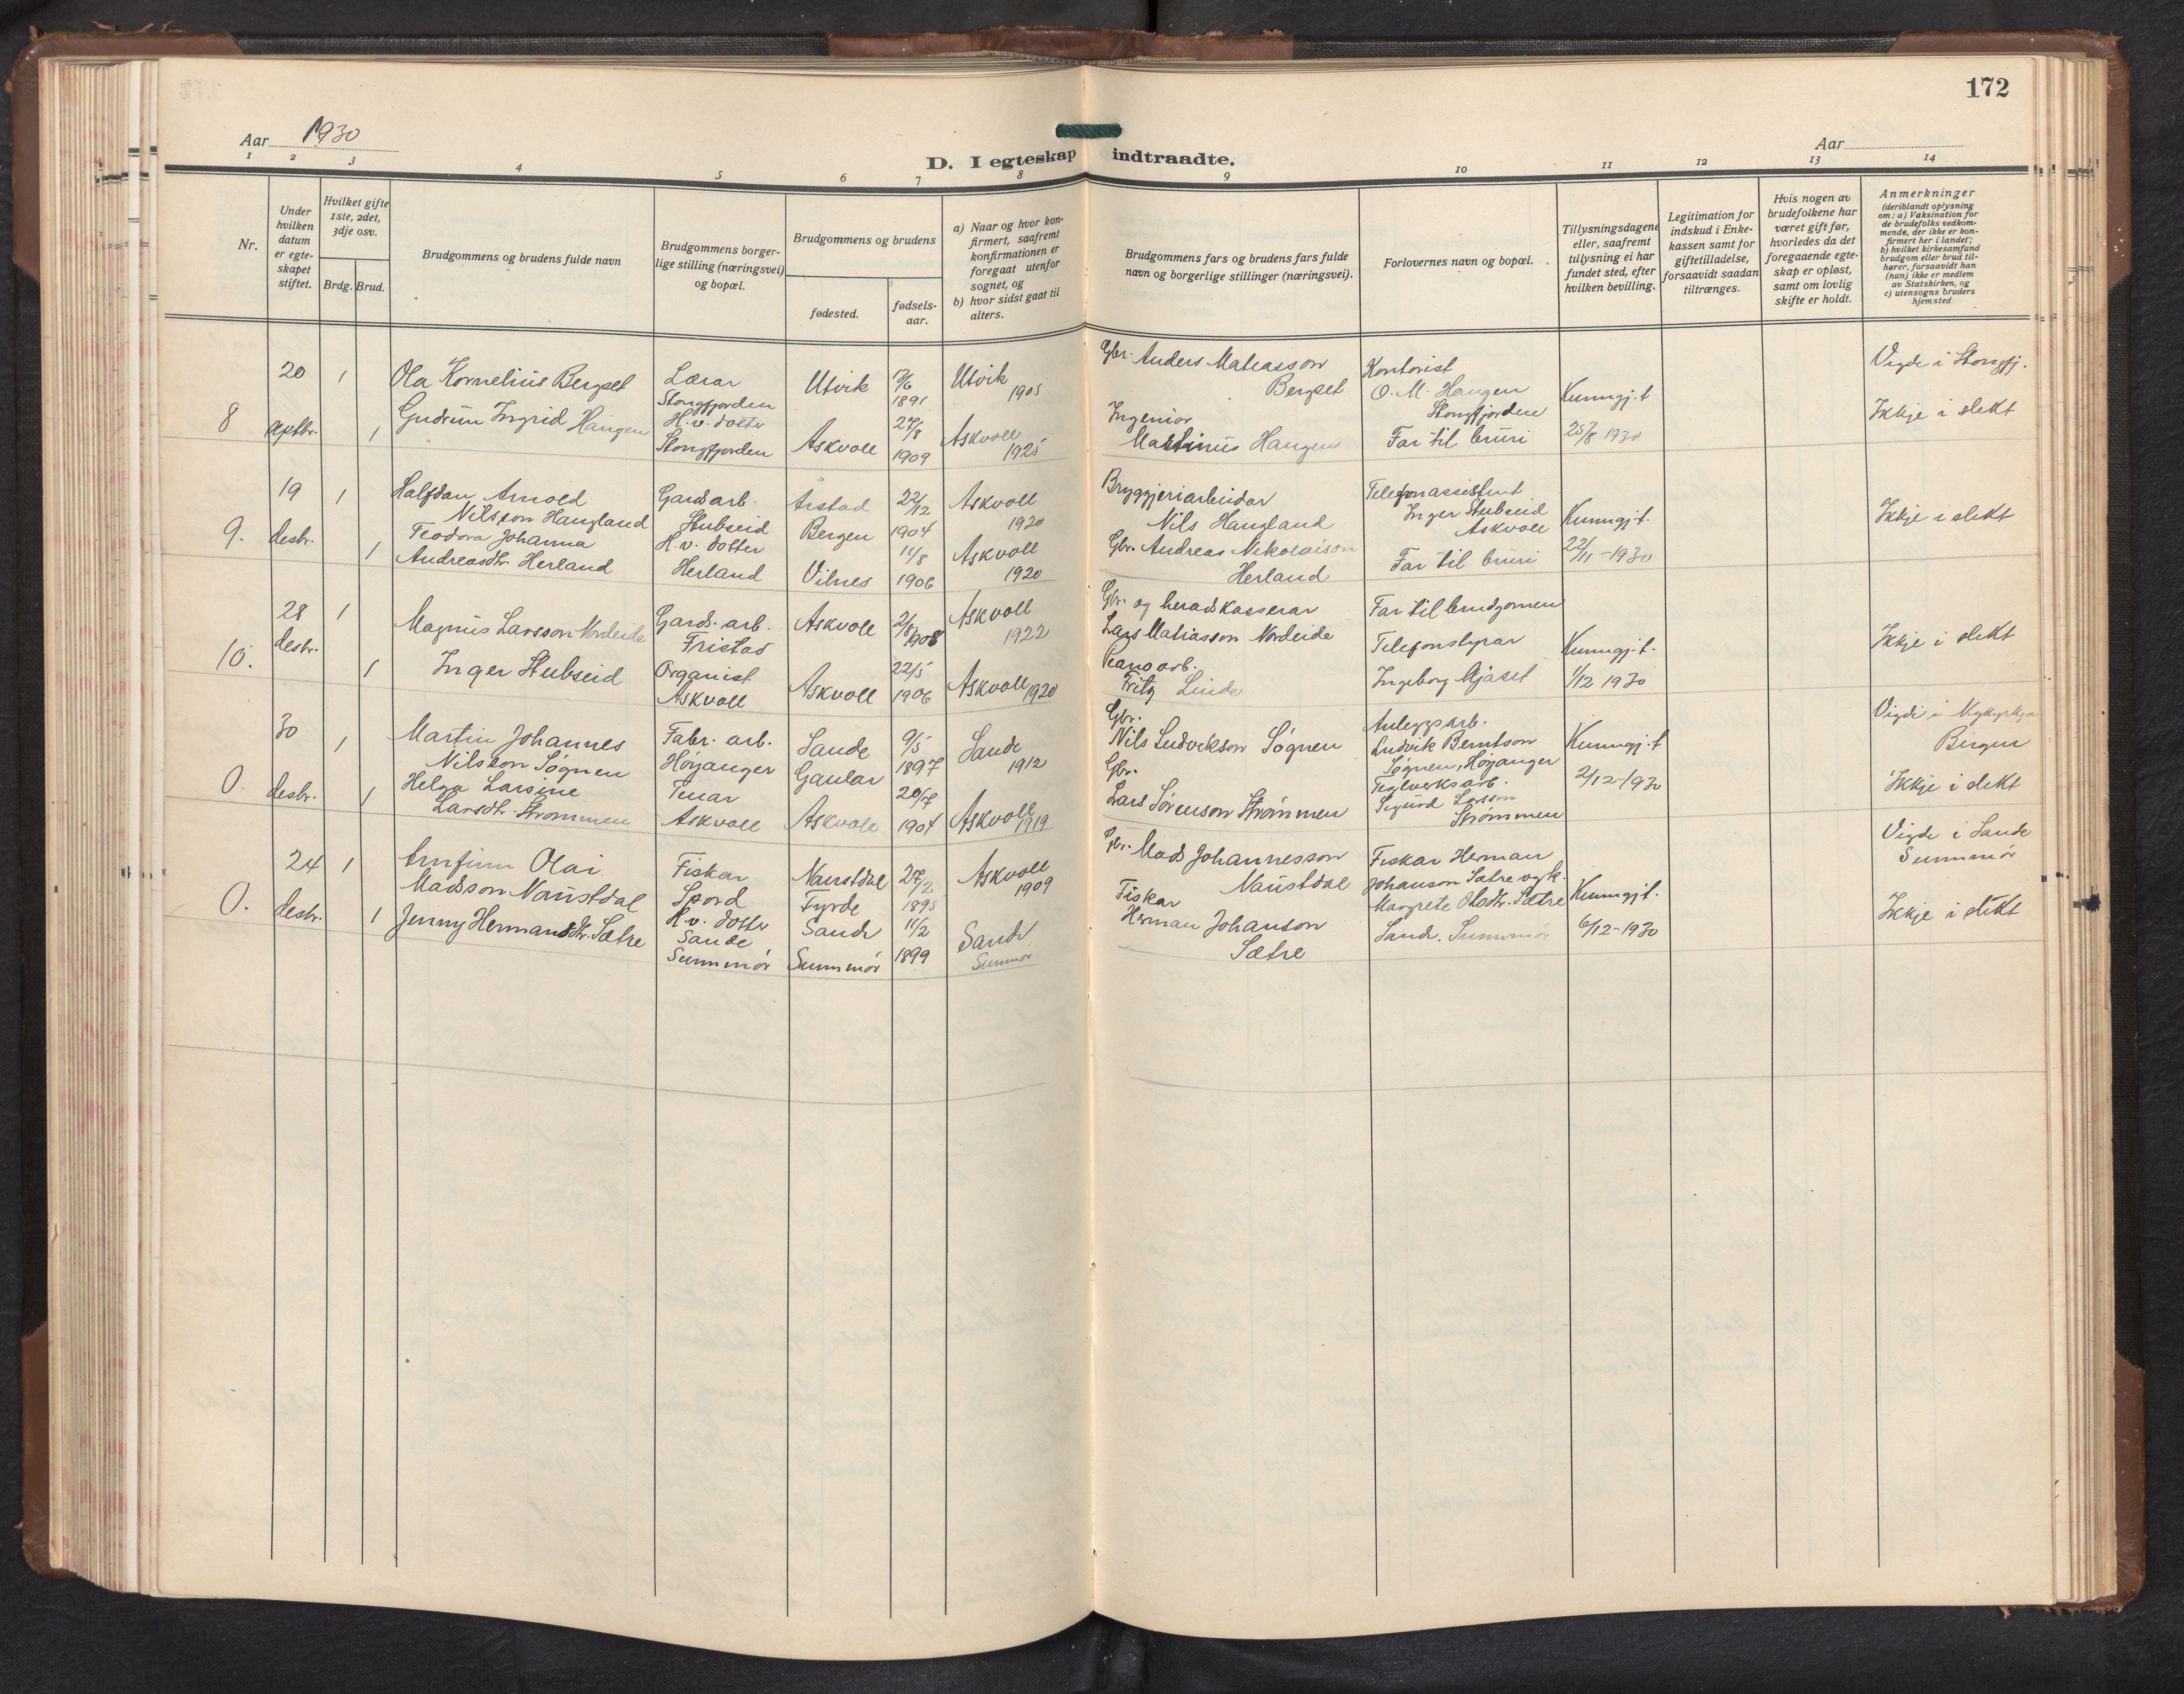 172
Aar 1930
Aar
D. I egteskap indtraadte.
1 2 3 4 5 6 7 8 9 10 11 12 13 14
Nr.
Under hvilken datum er egte-skapet stiftet.
Hvilket gifte 1ste, 2det, 3dje osv.
Brdg. Brud.
Brudgommens og brudens fulde navn
Brudgommens borger-
lige stilling (næringsvei)
og bopæl.
Brudgommens og brudens
fødested.
fødsels-
aar.
a) Naar og hvor kon-
firmert, saafremt
konfirmationen er
foregaat utenfor
sognet, og
b) hvor sidst gaat til
alters.
Brudgommens fars og brudens fars fulde
navn og borgerlige stillinger (næringsvei).
Forlovernes navn og bopæl.
Tillysningsdagene
eller, saafremt
tillysning ei har
fundet sted, efter
hvilken bevilling.
Legitimation for
indskud i Enke-
kassen samt for
giftetilladelse,
forsaavidt saadan
tiltrænges.
Hvis nogen av
brudefolkene har
været gift før,
hvorledes da det
foregaaende egte-
skap er opløst,
samt om lovlig
skifte er holdt.
Anmerkninger
(deriblandt oplysning
om: a) Vaksination for
de brudefolks vedkom-
mende, der ikke er kon-
firmert her i landet;
b) hvilket kirkesamfund
brudgom eller brud til-
hører, forsaavidt han
(hun) ikke er medlem
av Statskirken, og
c) utensogns bruders
hjemsted
8
20
septbr.
1
1
Ola Kornelius Bergset
Gudrun Ingrid Haugen
Lærar
Stongfjorden
H.v. dotter
Stongfjorden
Utvik
Askvoll
1891
24/8
1909
Utvik
1905
Askvoll
1925
Gbr. Anders Matiasson
Bergset
Ingeniør
Martinus Haugen
Kontorist
O. M. Haugen
Stongfjorden
Far til bruri
Kunngj.t
25/8 1930
Vigde i Stongfj.
Ikkje i slekt
9.
19
desbr.
1
1
Halfdan Arnold
Nilsson Haugland
Teodora Johanna
Andreasdtr. Herland
Gardsarb.
Stubseid
H.v. dotter
Herland
Årstad
Bergen
Vilnes
22/12
1904
11/8
1906
Askvoll
1920
Askvoll
1920
Bryggjeriarbeidar
Nils Haugland
Gbr. Andreas Nikolaison
Herland
Telefonassistent
Inger Stubseid
Askvoll
Far til bruri
Kunngj.t.
22/11-1930
Ikkje i slekt
10.
28
desbr.
1
1
Magnus Larsson Nordeide
Inger Stubseid
Gards.arb.
Fristad
Organist
Askvoll
Askvoll
Askvoll
2/8
1908
22/5
1906
Askvoll
1922
Askvoll 1920
Gbr. og heradskasserar
Lars Matiasson Nordeide
Pianoarb.
Fritz Linde
Far til brudgomen
Telefonstyrar
Ingeborg Gjåset
Kunngj.t.
1/12 1930
Ikkje i slekt
0.
30
desbr.
1
1
Martin Johannes
Nilsson Søgnen
Helga Larsine
Larsdtr. Strømmen
Fabr. arb.
Høyanger
Tenar
Askvoll
Sande
Gaular
Askvoll
9/5
1897
20/7
1904
Sande
1912
Askvoll
1919
Gbr.
Nils Ludvikson Søgnen
Gbr.
Lars Sørenson Strømmen
Anleggsarb.
Ludvik Berntson
Søgnen, Høyanger
Teglverksarb.
Sigurd Larsson
Strømmen
Kunngj.t
2/12-1930
Vigde i Nykyrkja
Bergen
Ikkje i slekt
0.
24
desbr.
1
1
Arnfinn Olai
Madsson Naustdal
Jenny Hermansdtr. Sætre
Fiskar
Spord
H.v. dotter
Sande
Sunnmør
Naustdal
Fyrde
Sande
Sunnmør
27/2
1895
11/2
1899
Askvoll
1909
Sande
Sunnmør
Gbr. Mads Johannesson
Naustdal
Fiskar
Herman Johanson
Sætre
Fiskar Herman
Johanson Sætre og k.
Margrete Olsdtr. Sætre
Sande, Sunnmør
Kunngj.t.
6/12-1930
Vigde i Sande
Sunnmør
Ikkje i slekt